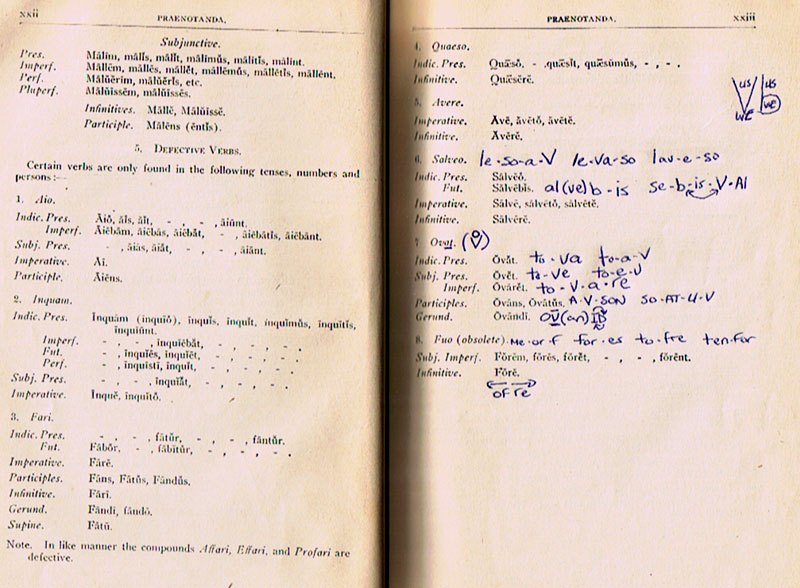 xxii
PRAENOTANDA.
Subjunctive.
Pres. Mālim, mālīs, mālit, mālīmŭs, mālītĭs, mālint.
Imperf. Māllĕm, māllēs, māllĕt, māllēmŭs, māllētĭs, māllent.
Perf. Mālŭĕrim, mālŭĕrĭs, etc.
Pluperf. Mālŭissĕm, mālŭissēs.
Infinitives. Mallĕ, Mālŭissĕ.
Participle. Mālens (entĭs).
5. DEFECTIVE VERBS.
Certain verbs are only found in the following tenses, numbers and
persons:—
1. Aio.
Indic. Pres. Āiŏ, ăĭs, ăĭt, - , - , āiunt.
Imperf. Āiēbăm, āiēbās, āiēbăt, - , āiēbātĭs, āiēbant.
Subj. Pres. - , āiās, āiăt, - , - , āiant.
Imperative. Aĭ.
Participle. Āiens.
2. Inquam.
Indic. Pres. Inquăm (inquĭŏ), inquĭs, inquĭt, inquĭmŭs, inquĭtĭs,
inquĭunt.
Imperf. - , - , inquiēbăt, - , - , - .
Fut. - , inquĭēs, inquĭĕt, - , - , - .
Perf. - , inquisti, inquit, - , - , - .
Subj. Pres. - , - , inquĭăt, - , - , - .
Imperative. Inquĕ, inquĭtŏ.
3. Fari.
Indic. Pres. - , - , fātŭr, - , - , fantŭr.
Fut. Fābŏr, - , fābĭtŭr, - , - , - .
Imperative. Fārĕ.
Participles. Fans, Fātŭs, Fandŭs.
Infinitive. Fārī.
Gerund. Fandi, fandō.
Supine. Fātū.
Note. In like manner the compounds Affari, Effari, and Profari are
defective.
PRAENOTANDA.
xxiii
4. Quaeso.
Indic. Pres. Quǣsŏ, - , quǣsĭt, quǣsŭmŭs, - , - .
Infinitive. Quǣsĕrĕ.
us us
WE WE
5. Avere.
Imperative. Avē, ăvētŏ, ăvētĕ.
Infinitive. Avērĕ.
6. Salveo. le-so-a-V le-va-so lav-e-so
Indic. Pres. Salvĕŏ.
Fut. Salvēbĭs. al(ve)b-is se-b-is-V-Al
Imperative. Salvē, salvētŏ, salvētĕ.
Infinitive. Salvērĕ.
7. Ovat.
Indic. Pres. Ŏvăt. to-va to-a-V
Subj. Pres. Ŏvĕt. to-ve to-e-V
Imperf. Ŏvārĕt. to-V-a-re
Participles. Ŏvans, Ŏvātŭs. A-V-SON SO-AT-U-V
Gerund. Ŏvandi. OV(an)IB
8. Fuo (obsolete). Me-or-f for-es to-fre ten-for
Subj. Imperf. Fŏrĕm, fŏrēs, fŏrĕt, - , - , fŏrent.
Infinitive. Fŏrĕ.
of re